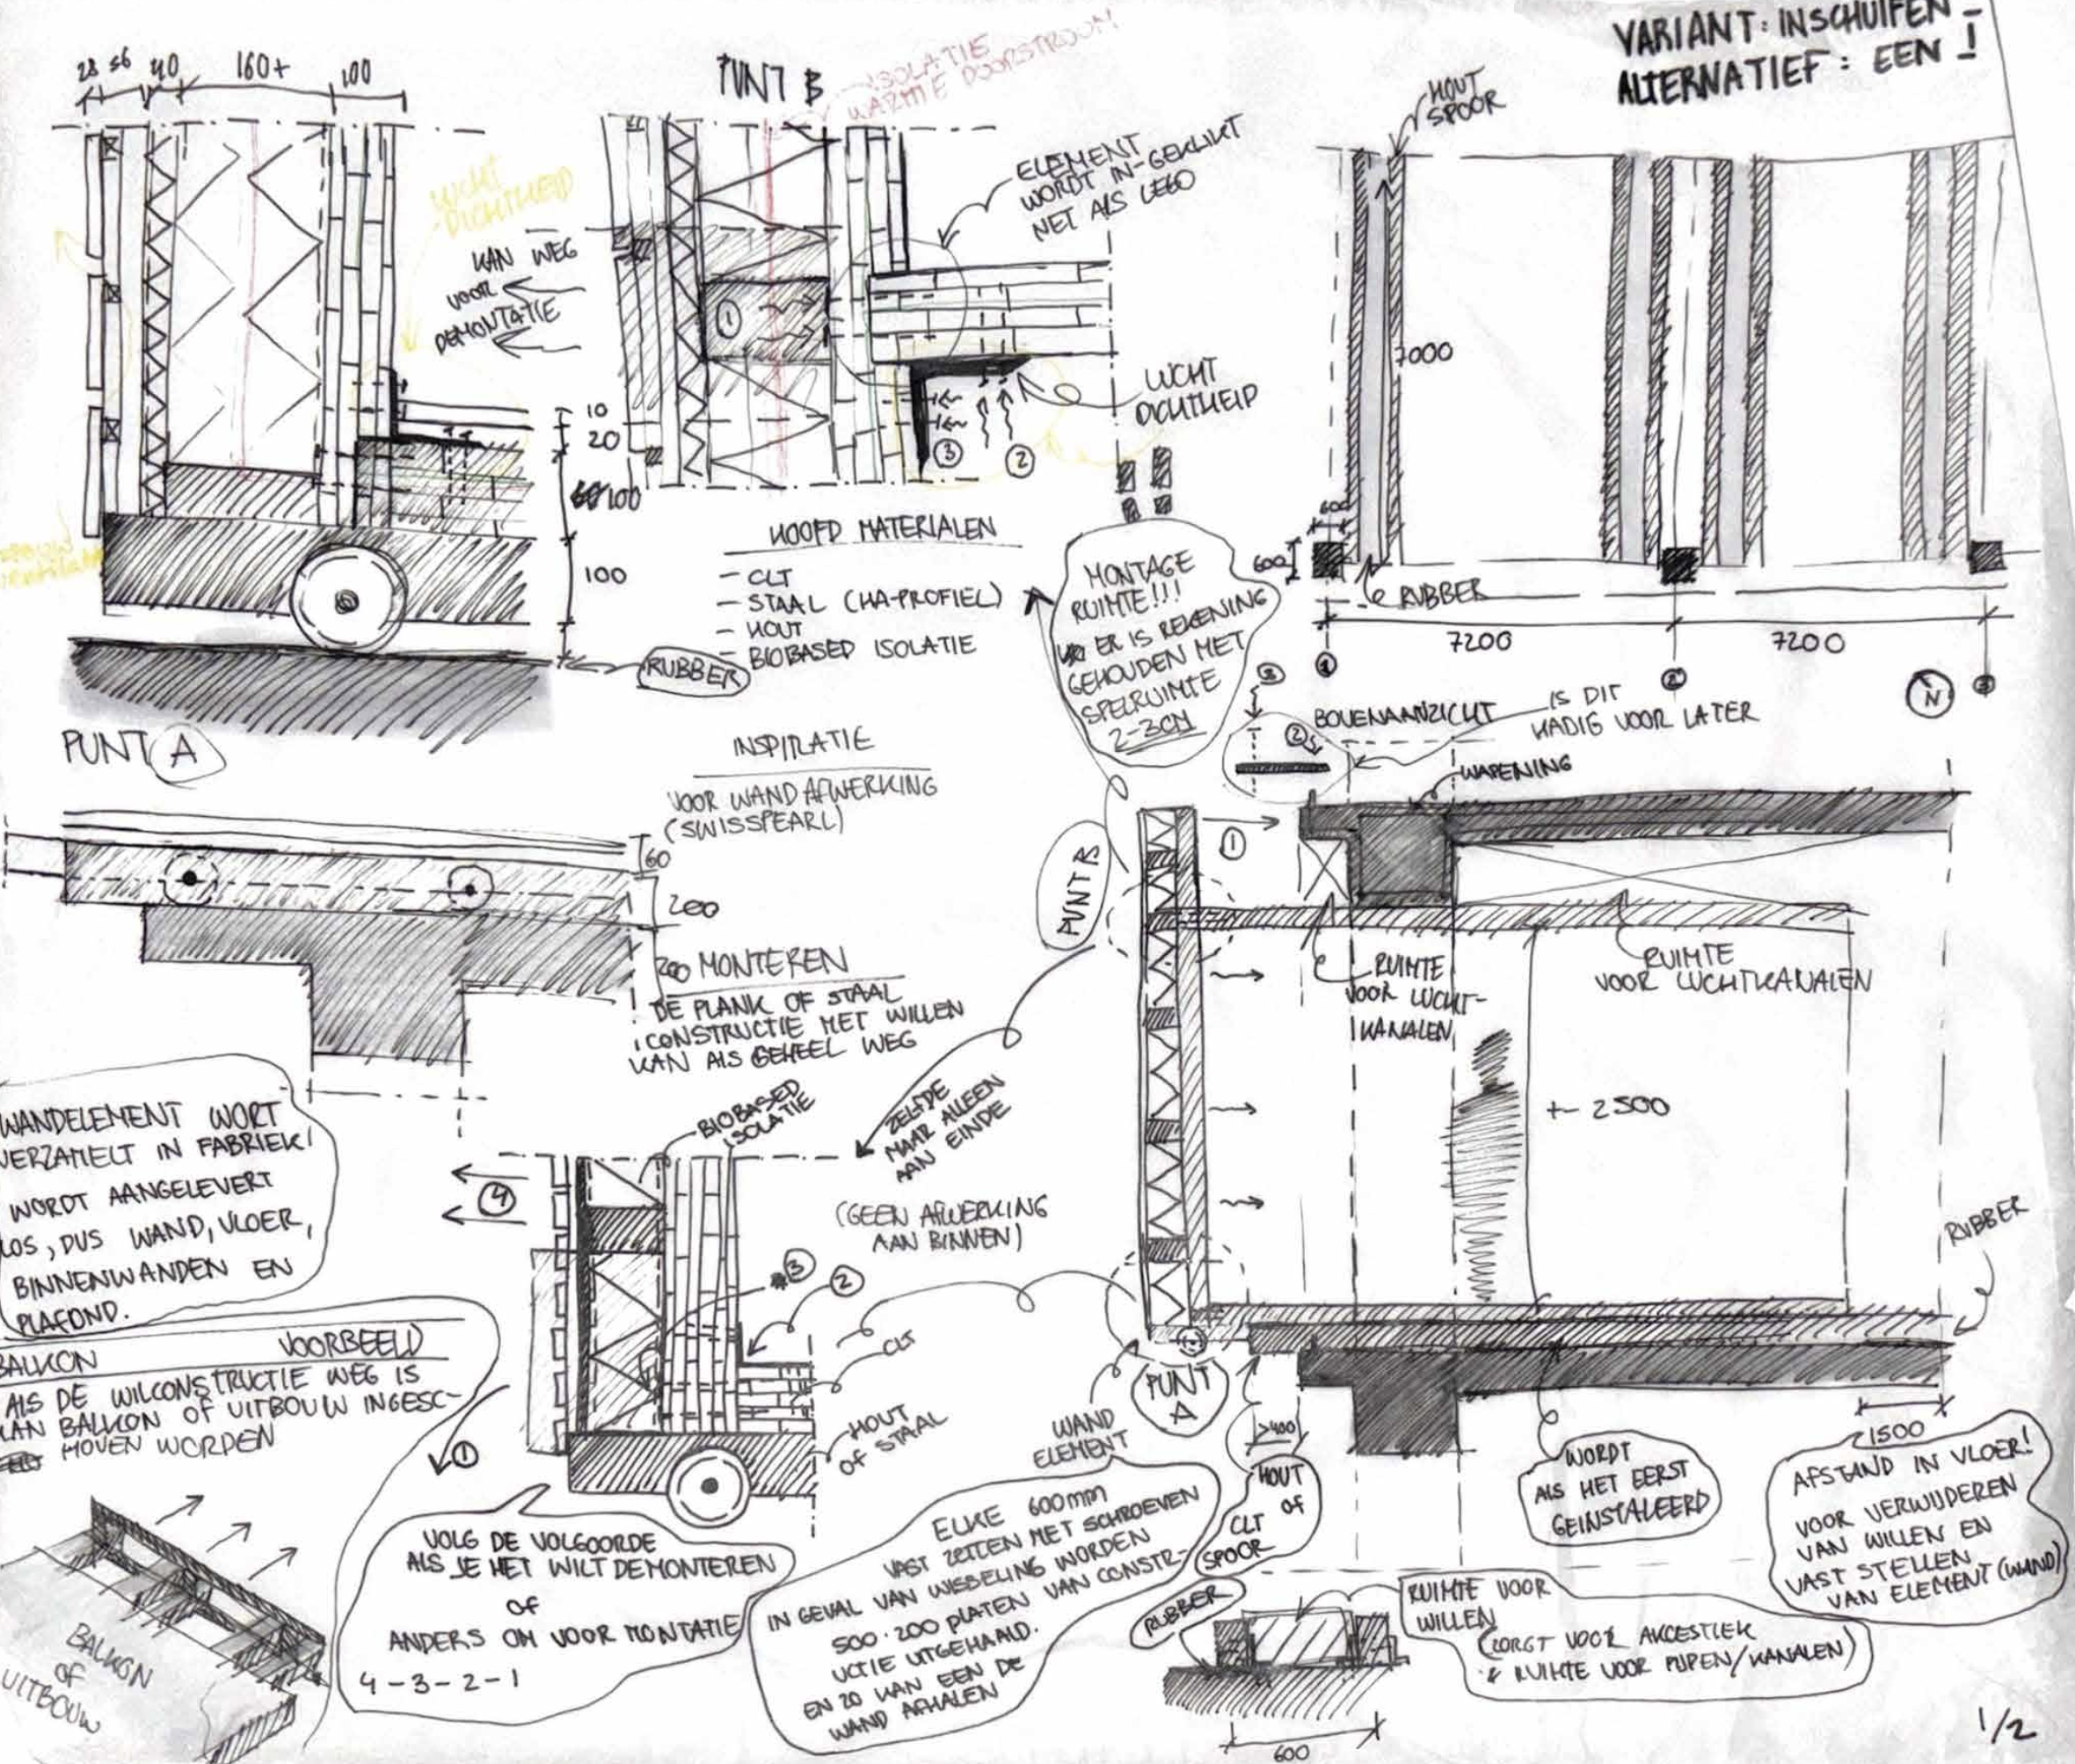 VARIANT: INSCHUIFEN -
ALTERNATIEF: EEN -
28 56 40 160+ 100
PUNT B
ISOLATIE
WARMTE DOORSTROOM
HOUT
SPOOR
ELEMENT
WORDT IN-GEKLIKT
NET ALS LEGO
LUCHT
DICHTHEID
KAN WEG
VOOR
DEMONTATIE
1
LUCHT
DICHTHEID
3
2
10
20
100
100
RUBBER
PUNT A
HOOFD MATERIALEN
- CLT
- STAAL (HA-PROFIEL)
- HOUT
- BIOBASED ISOLATIE
MONTAGE
RUIMTE!!!
ER IS REKENING
GEHOUDEN MET
SPELRUIMTE
2-3CM
7000
600
600
RUBBER
7200
7200
1
2
3
N
BOVENAANZICHT
IS DIT
HADIG VOOR LATER
3
2
WAPENING
INSPIRATIE
VOOR WANDAFWERKING
(SWISSPEARL)
60
200
200
MONTEREN
DE PLANK OF STAAL
CONSTRUCTIE MET WILLEN
KAN ALS GEHEEL WEG
PUNT B
1
RUIMTE
VOOR LUCHT-
KANALEN
RUIMTE
VOOR LUCHTKANALEN
+- 2500
RUBBER
WANDELEMENT WORT
VERZAMELT IN FABRIEK!
WORDT AANGELEVERT
LOS, DUS WAND, VLOER,
BINNENWANDEN EN
PLAFOND.
BIOBASED
ISOLATIE
ZELFDE
MAAR ALLEEN
AAN EINDE
(GEEN AFWERKING
AAN BINNEN)
4
3
2
CLT
HOUT
OF STAAL
1
BALKON VOORBEELD
ALS DE WILCONSTRUCTIE WEG IS
KAN BALKON OF UITBOUW INGESC-
HOVEN WORDEN
BALKON
OF
UITBOUW
VOLG DE VOLGOORDE
ALS JE HET WILT DEMONTEREN
OF
ANDERS OM VOOR MONTATIE
4-3-2-1
WAND
ELEMENT
PUNT
A
ELKE 600mm
VAST ZETTEN MET SCHROEVEN
IN GEVAL VAN WISSELING WORDEN
500·200 PLATEN VAN CONSTR-
UCTIE UITGEHAALD.
EN ZO KAN EEN DE
WAND AFHALEN
>400
HOUT
OF
CLT
SPOOR
RUBBER
WORDT
ALS HET EERST
GEINSTALEERD
1500
AFSTAND IN VLOER!
VOOR VERWIJDEREN
VAN WILLEN EN
VAST STELLEN
VAN ELEMENT (WAND)
RUIMTE VOOR
WILLEN
(ZORGT VOOR AKOESTIEK
& RUIMTE VOOR PIJPEN/KANALEN)
600
1/2